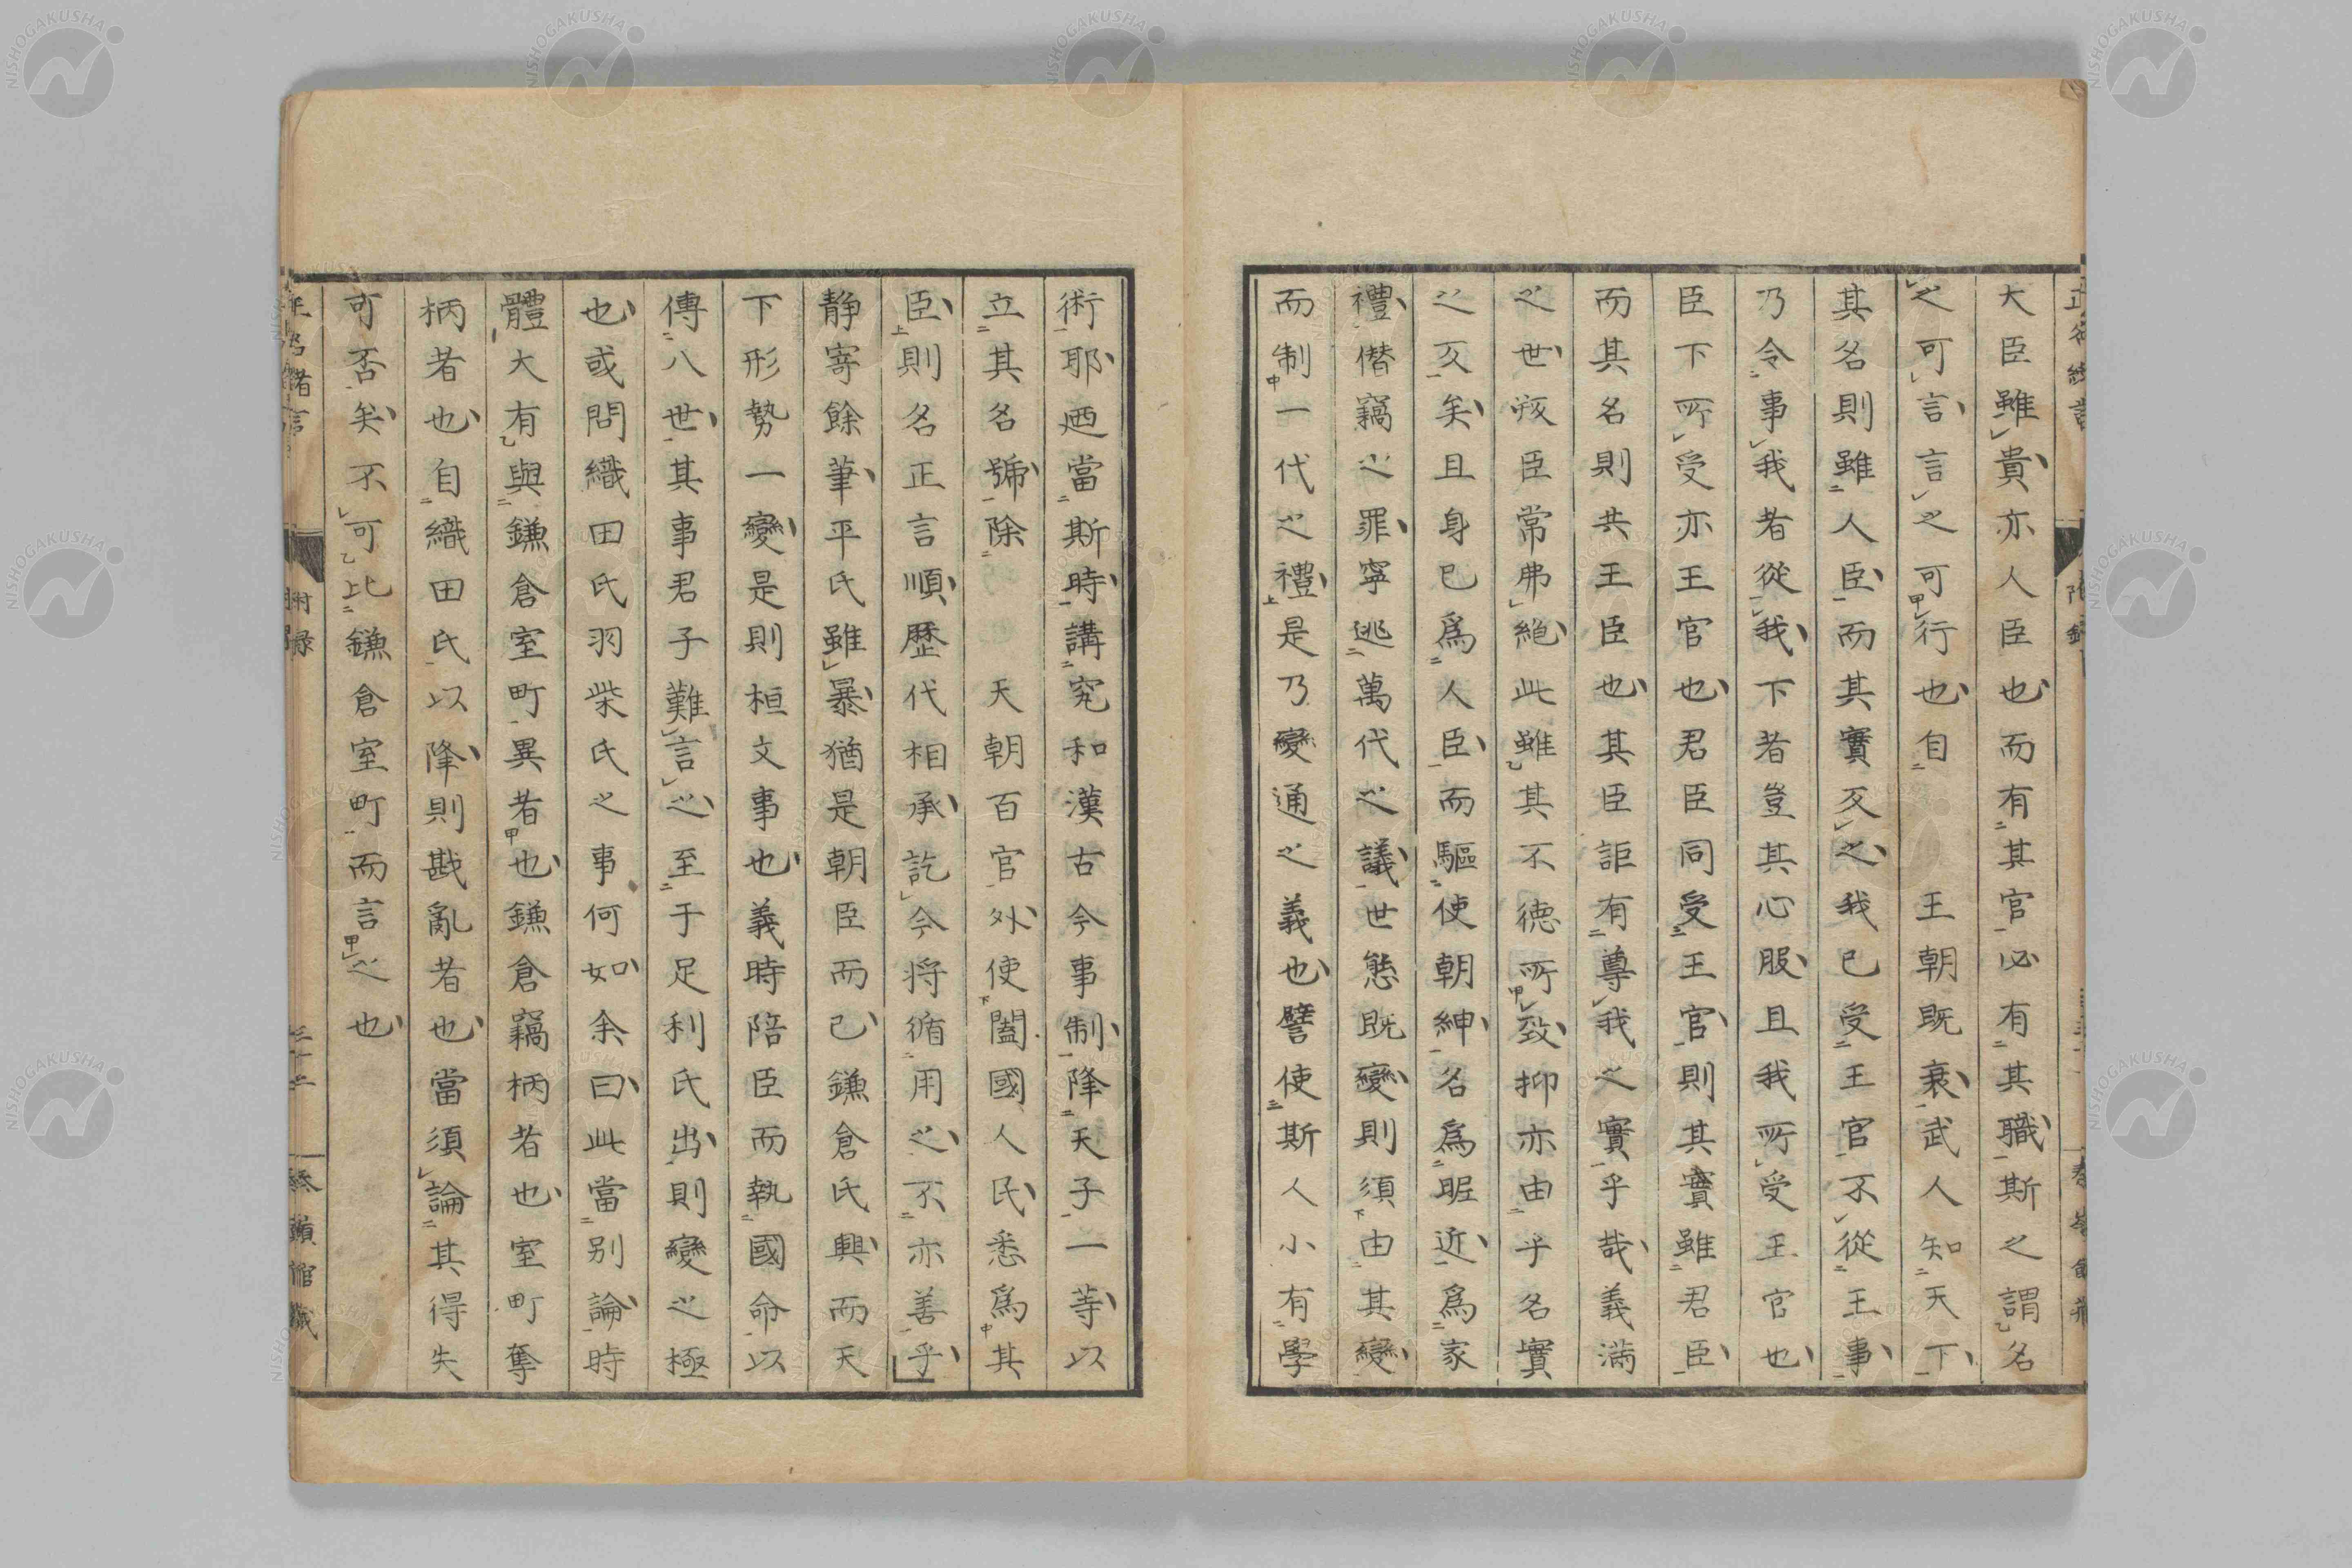 大臣雖貴亦人臣也而有其官必有其職斯之謂名
之可言言之可行也自　王朝既衰武人知天下
其名則雖人臣而其實反之我已受王官不從王事
乃令事我者從我下者豈其心服且我所受王官也
臣下所受亦王官也君臣同受王官則其實雖君臣
而其名則共王臣也其臣詎有尊我之實乎哉義滿
之世叛臣常弗絕此雖其不德所致抑亦由乎名實
之反矣且身已爲人臣而驅使朝紳名爲昵近爲家
禮僭竊之罪寧逃萬代之議世態既變則須由其變
而制一代之禮是乃變通之義也譬使斯人小有學
術耶迺當斯時講究和漢古今事制降天子一等以
立其名號除　天朝百官外使闔國人民悉爲其
臣則名正言順歷代相承訖今將循用之不亦善乎
靜寄餘筆平氏雖暴猶是朝臣而已鎌倉氏興而天
下形勢一變是則桓文事也義時陪臣而執國命以
傳八世其事君子難言之至于足利氏出則變之極
也或問織田氏羽柴氏之事何如余曰此當別論時
體大有與鎌倉室町異者也鎌倉竊柄者也室町奪
柄者也自織田氏以降則戡亂者也當須論其得失
可否矣不可比鎌倉室町而言之也
附錄
三十二